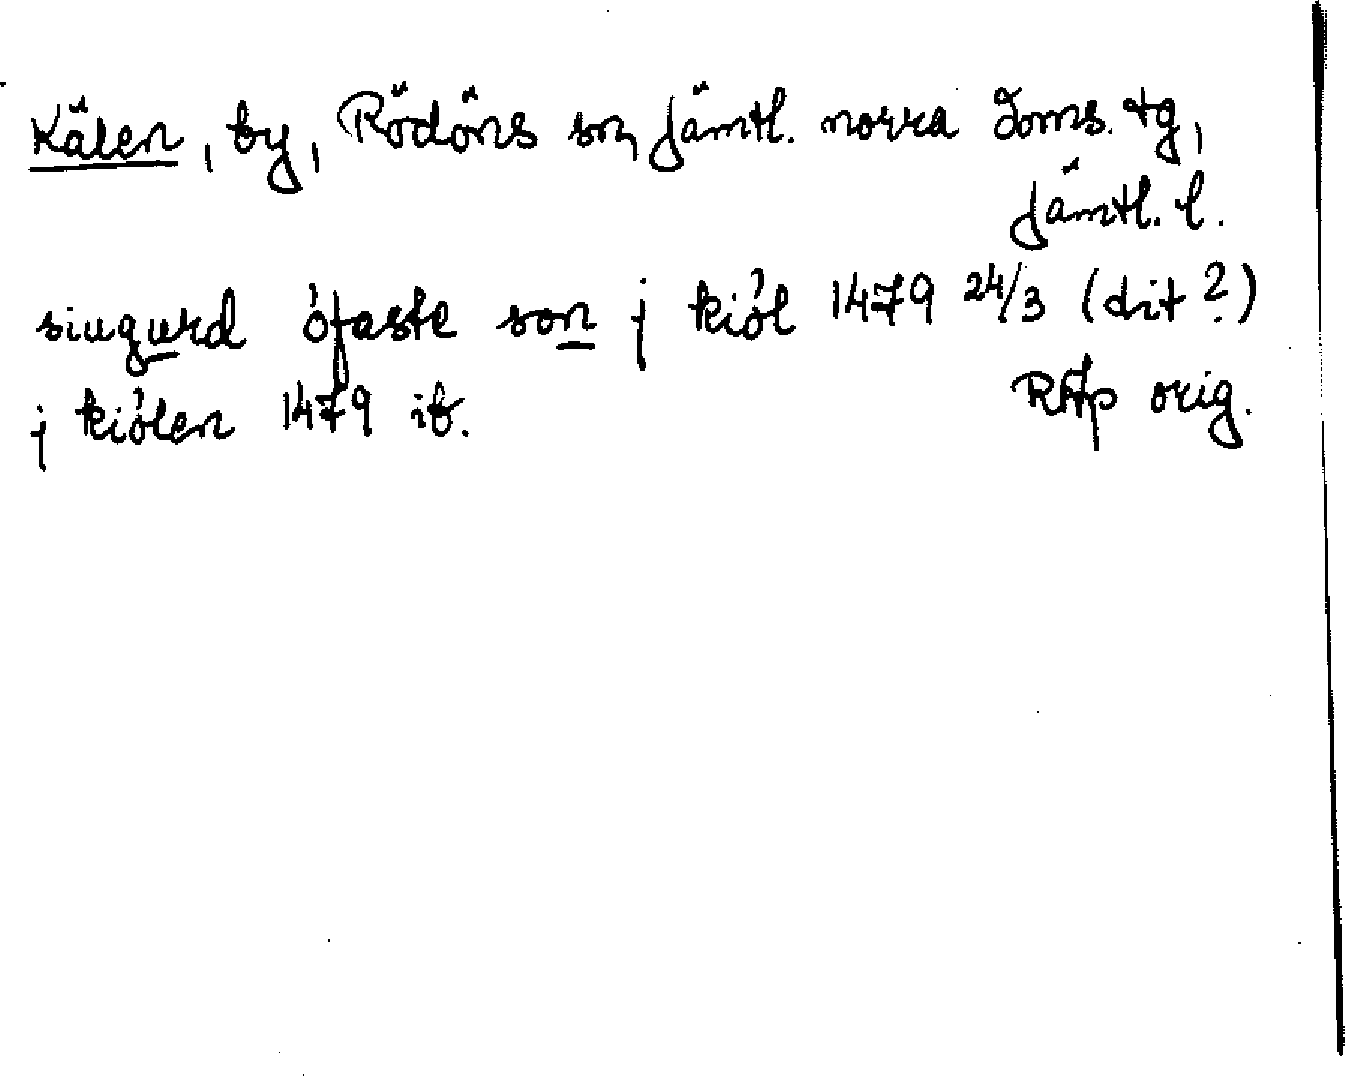 Kälen, by, Rödöns sn, Jämtl. norra doms. tg,
Jämtl. l.
siugurd ófaste son j kiól 1479 24/3 (dit?)
RAp orig.
j kiólen 1479 ib.